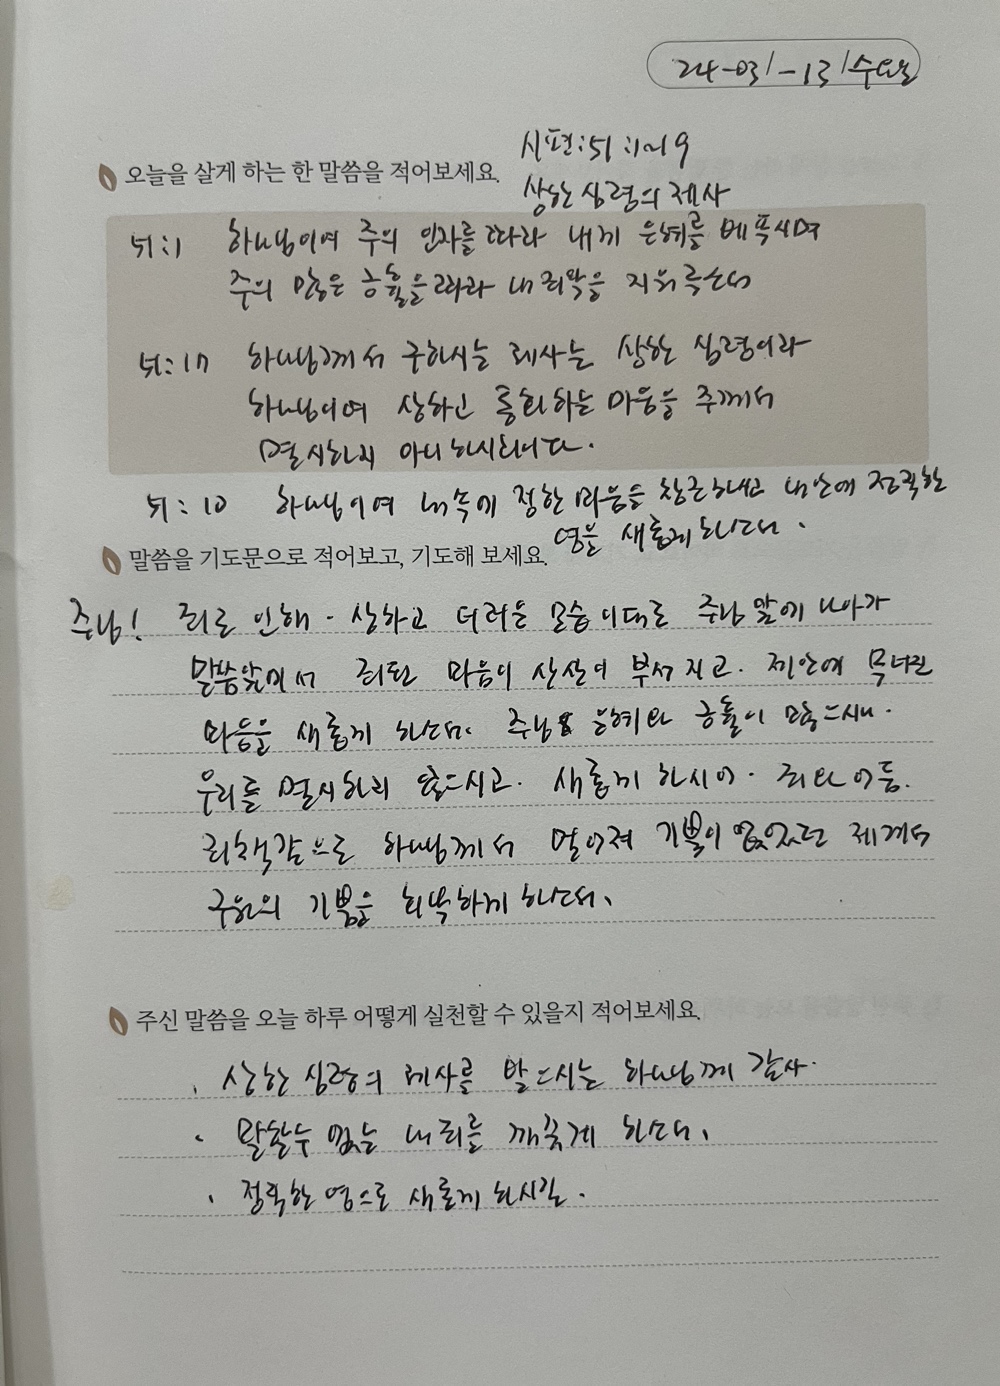 24-03/-13/수요일
시편:51:1~19
오늘을 살게 하는 한 말씀을 적어보세요.
상한 심령의 제사
51:1 하나님이여 주의 인자를 따라 내게 은혜를 베푸시며
주의 많은 긍휼을 따라 내 죄악을 지워 주소서
51:17 하나님께서 구하시는 제사는 상한 심령이라
하나님이여 상하고 통회하는 마음을 주께서
멸시하지 아니하시리이다.
51:10 하나님이여 내 속에 정한 마음을 창조하시고 내 안에 정직한
영을 새롭게 하소서.
말씀을 기도문으로 적어보고, 기도해 보세요.
주님! 죄로 인해 - 상하고 더러운 모습 이대로 주님 앞에 나아가
말씀앞에서 죄된 마음이 산산이 부서지고. 제안에 무너진
마음을 새롭게 하소서. 주님 은혜와 긍휼이 많으시니.
우리를 멸시하지 않으시고. 새롭게 하시어. 죄와 어둠.
죄책감으로 하나님께서 멀어져 기쁨이 없었던 제게서
구원의 기쁨을 회복하게 하소서.
주신 말씀을 오늘 하루 어떻게 실천할 수 있을지 적어보세요.
. 상한 심령의 제사를 받으시는 하나님께 감사.
. 말할수 없는 내 죄를 깨끗게 하소서.
. 정직한 영으로 새롭게 하시길.